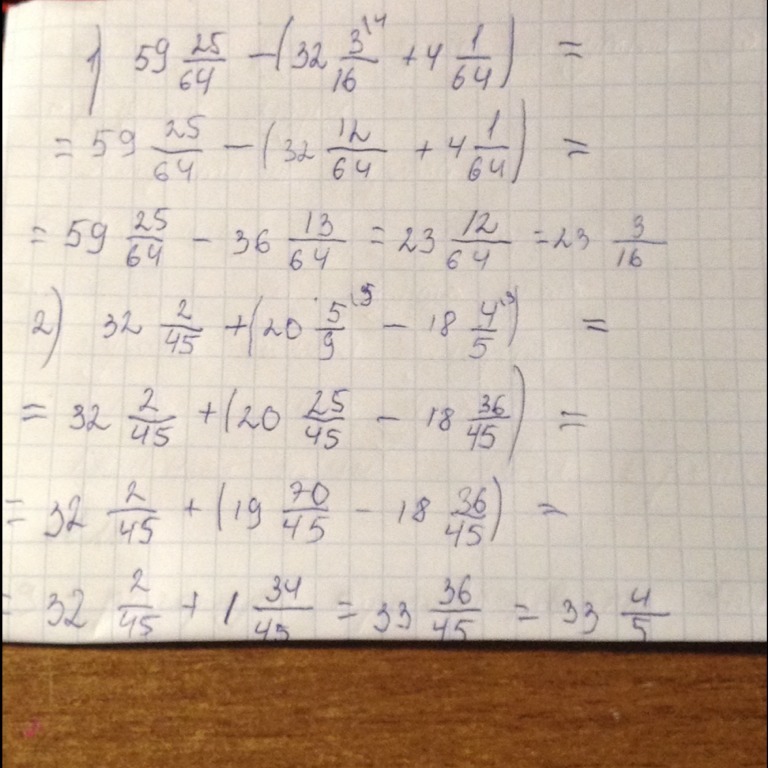 1) 59 25/64 - (32 3^\4/16 + 4 1/64) =
= 59 25/64 - (32 12/64 + 4 1/64) =
= 59 25/64 - 36 13/64 = 23 12/64 = 23 3/16
2) 32 2/45 + (20 5^\5/9 - 18 4^\9/5) =
= 32 2/45 + (20 25/45 - 18 36/45) =
= 32 2/45 + (19 70/45 - 18 36/45) =
= 32 2/45 + 1 34/45 = 33 36/45 = 33 4/5